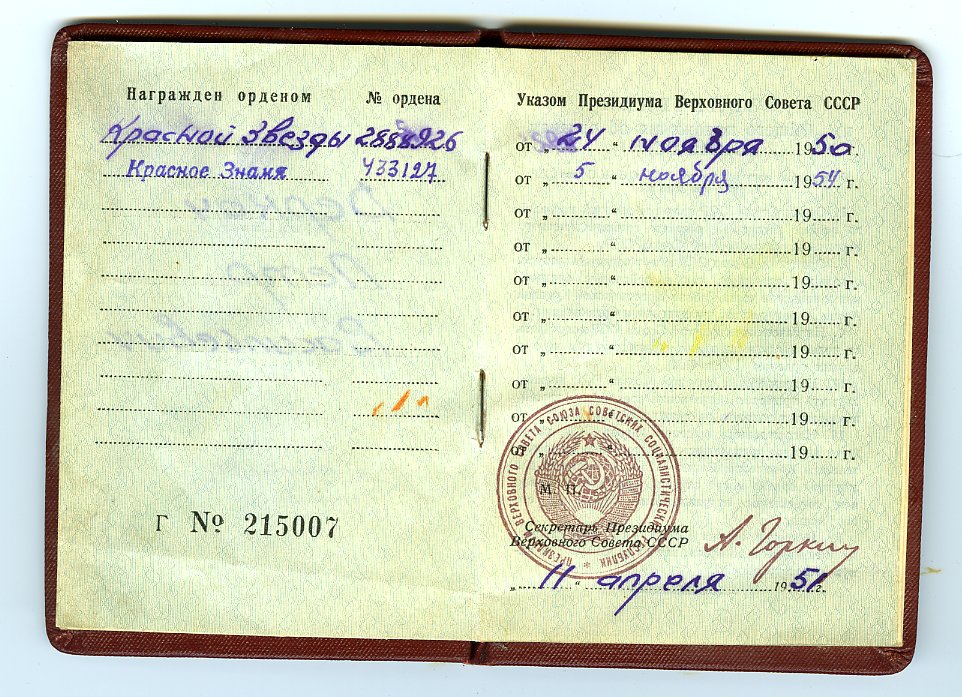 Награжден орденом № ордена
Красной Звезды 2888926
Красное Знамя 433127
Г № 215007
Указом Президиума Верховного Совета СССР
от „ 24 “ ноября 1950
от „ 5 “ ноября 1954 г.
от „ “ 19 г.
от „ “ 19 г.
от „ “ 19 г.
от „ “ 19 г.
от „ “ 19 г.
от „ “ 19 г.
от „ “ 19 г.
от „ “ 19 г.
ПРЕЗИДИУМ ВЕРХОВНОГО СОВЕТА СОЮЗА СОВЕТСКИХ СОЦИАЛИСТИЧЕСКИХ РЕСПУБЛИК
М. П.
Секретарь Президиума
Верховного Совета СССР А. Горкин
„ 11 “ апреля 1951 г.